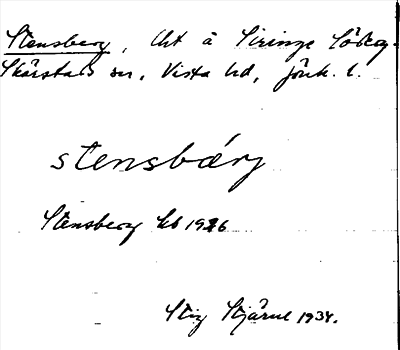 Stensberg, lht å Siringe Söreg.
Skärstads sn, Vista hd, Jönk. l.
stensbærj
Stensberg kb 1926
Stig Stjärne 1934.